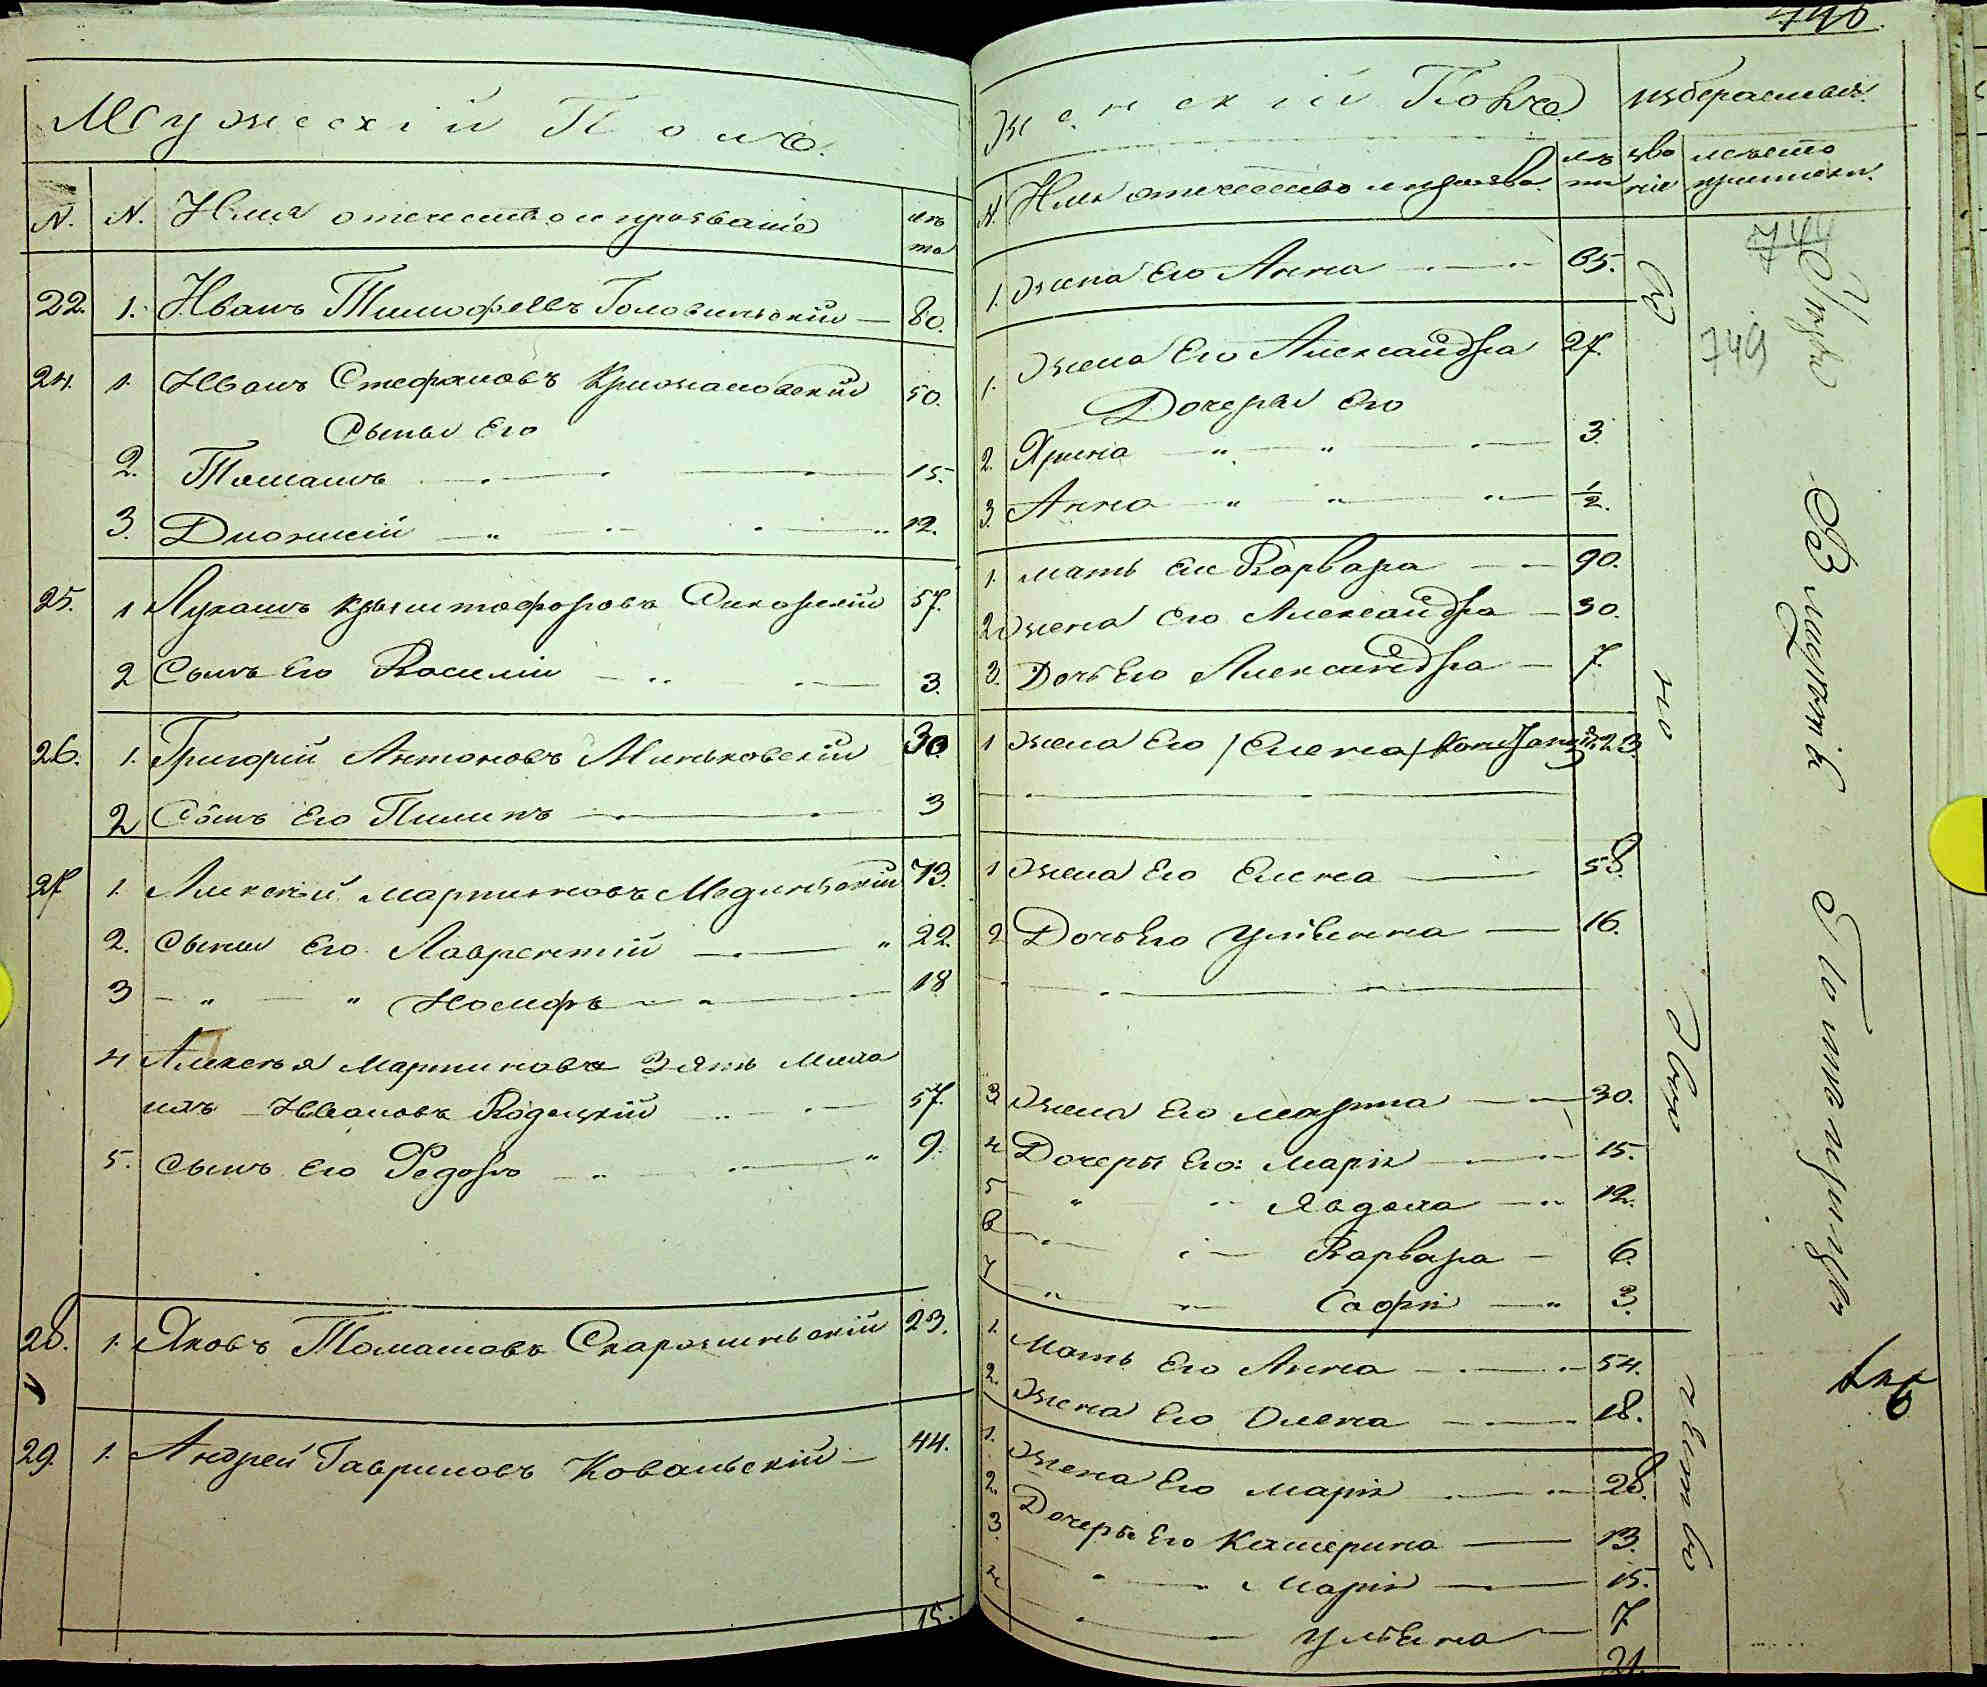 Мужескій Полъ.
N. N. Имя отечество и прозваніе лѣта
22. 1. Иванъ Тимофѣевъ Головинскій — 80.
24. 1. Иванъ Стефановъ Крижановскій 50.
Сыны Его
2. Томашъ 15.
3. Дионисій 12.
25. 1 Лукашъ Крыштофоровъ Сикорскій 57.
2 Сынъ Его Василій 3.
26. 1. Григорій Антоновъ Миньковскій 30.
2 Сынъ Его Пилипъ 3
27 1. Алексѣй Мартиновъ Мединьскій 73.
2. Сыны Его Лаврентій 22.
3 " " Иосифъ 18
4 Алексѣя Мартинова Зять Миха
илъ Ивановъ Родецкій 57.
5. Сынъ Его Федоръ 9.
28. 1. Яковъ Томашовъ Скарожиньскій 23.
29. 1. Андрей Гавриловъ Ковальскій — 44.
15.
746.
Женскій Полъ избераемыя
N. Имя отечество и прозва. лѣта зва ніе мѣсто приписки.
1. Жена Его Анна 65.
1. Жена Его Александра 27.
Дочеры Его
2. Ярина 3.
3. Анна 1/2.
1. Мать Его Варвара 90.
2 Жена Его Александра — 30.
3. Дочь Его Александра — 7.
1 Жена Его /Елена/ 23.
1 Жена Его Елена 58.
2 Дочь Его Уліянна — 16.
3 Жена Его Марта 30.
4 Дочеры Его: Марія 15.
5 " " Явдоха 12.
6 Варвара — 6.
7 " Софія 3.
1. Мать Его Анна 54.
2. Жена Его Олена 18.
1. Жена Его Марія 28.
2. Дочеры Его Катерина 13.
3. Марія 15.
4 Уліяна 7
21.
744
749
Въ